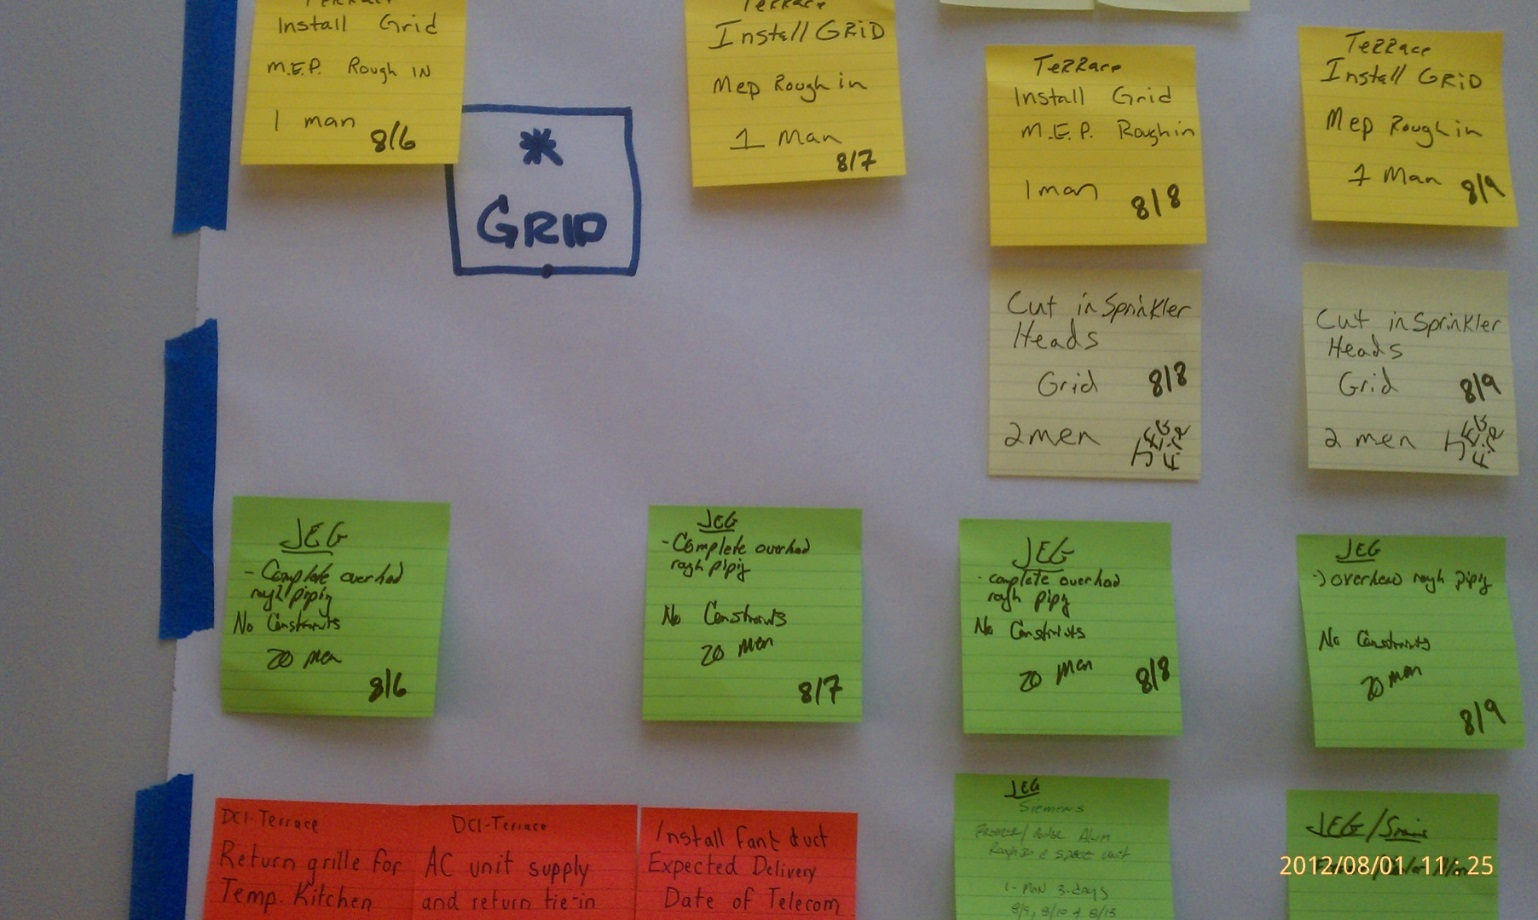 Terrace
Install Grid
M.E.P. Rough IN
1 man
8/6
*
GRID
Terrace
Install GRiD
Mep Rough in
1 Man
8/7
Terrace
Install Grid
M.E.P. Rough in
1 man
8/8
Terrace
Install GRiD
Mep Rough in
1 Man
8/9
Cut in Sprinkler
Heads
Grid
8/8
2 men
Cut in Sprinkler
Heads
Grid
8/9
2 men
JEG
- Complete overhad
rough piping
No Constraints
20 men
8/6
JEG
- Complete overhad
rough piping
No Constraints
20 men
8/7
JEG
- complete overhad
rough piping
No Constraints
20 men
8/8
JEG
-) overhead rough piping
No Constraints
20 men
8/9
DCI-Terrace
Return grille for
Temp. Kitchen
DCI-Terrace
AC unit supply
and return tie-in
Install Fan & duct
Expected Delivery
Date of Telecom
JEG
Siemens
Alarm
1- Man 3-days
8/9, 8/10 & 8/13
JEG/
2012/08/01 11:25